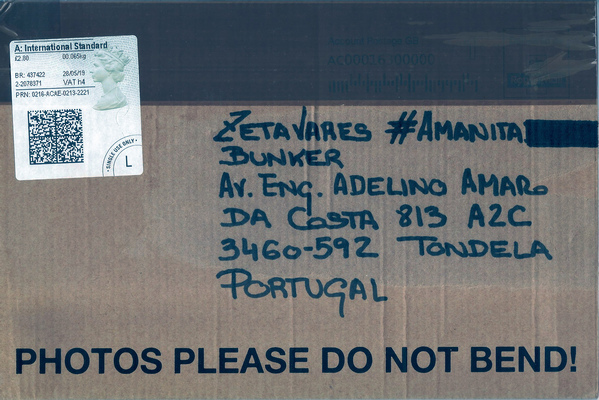 A: International Standard
£2.80 00.065kg
BR: 437422 28/05/19
2-2078371 VAT h4
PRN: 0216-ACAE-0213-2221
• SINGLE USE ONLY •
L
AC00026300000
ZETAVARES #AMANITA
BUNKER
AV. ENG. ADELINO AMARO
DA COSTA 813 A2C
3460-592 TONDELA
PORTUGAL
PHOTOS PLEASE DO NOT BEND!